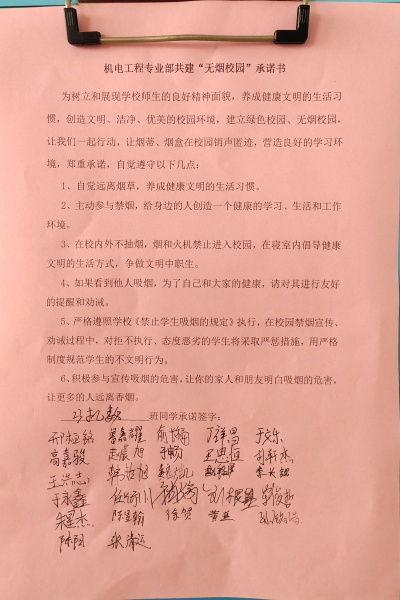 机电工程专业部共建“无烟校园”承诺书
为树立和展现学校师生的良好精神面貌，养成健康文明的生活习
惯，创造文明、洁净、优美的校园环境，建立绿色校园、无烟校园，
让我们一起行动，让烟蒂、烟盒在校园销声匿迹，营造良好的学习环
境，郑重承诺，自觉遵守以下几点：
1、自觉远离烟草，养成健康文明的生活习惯。
2、主动参与禁烟，给身边的人创造一个健康的学习、生活和工作
环境。
3、在校内外不抽烟，烟和火机禁止进入校园，在寝室内倡导健康
文明的生活方式，争做文明中职生。
4、如果看到他人吸烟，为了自己和大家的健康，请对其进行友好
的提醒和劝诫。
5、严格遵照学校《禁止学生吸烟的规定》执行，在校园禁烟宣传、
劝诫过程中，对拒不执行、态度恶劣的学生将采取严惩措施，用严格
制度规范学生的不文明行为。
6、积极参与宣传吸烟的危害，让你的家人和朋友明白吸烟的危害，
让更多的人远离香烟。
班同学承诺签字：
高嘉骏 孟晨旭 于畅 王思恒
王洪志
于永鑫
朱星杰 陈昱翰 徐贺
陈阳